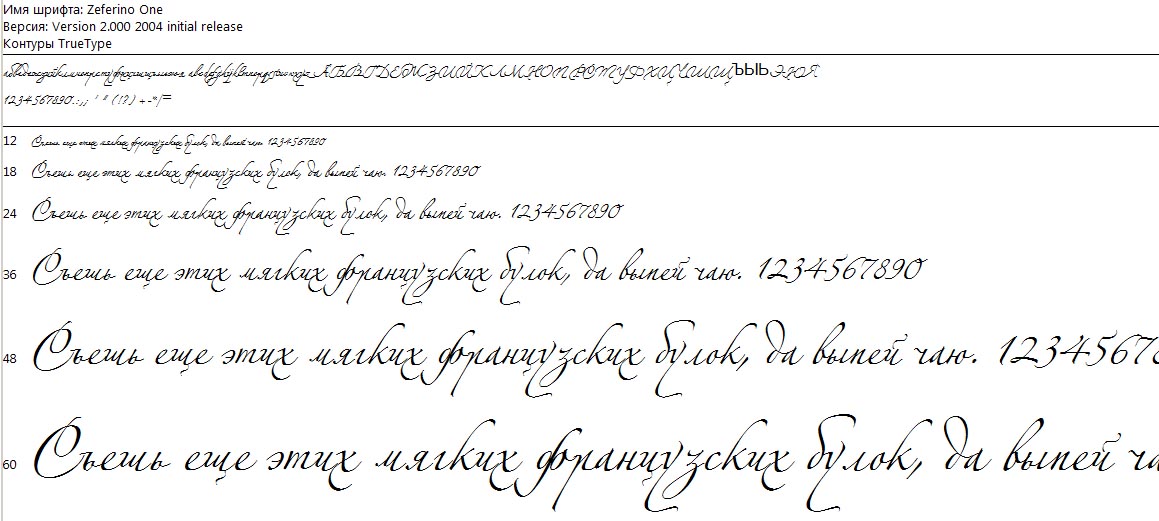 Имя шрифта: Zeferino One
Версия: Version 2.000 2004 initial release
Контуры TrueType
абвгдежзийклмнопрстуфхцчшщъыьэюя abcdefghijklmnopqrstuvwxyz АБВГДЕЖЗИЙКЛМНОПРСТУФХЦЧШЩЪЫЬЭЮЯ
1234567890.:,; ' " (!?) +-*/=
12 Съешь еще этих мягких французских булок, да выпей чаю. 1234567890
18 Съешь еще этих мягких французских булок, да выпей чаю. 1234567890
24 Съешь еще этих мягких французских булок, да выпей чаю. 1234567890
36 Съешь еще этих мягких французских булок, да выпей чаю. 1234567890
48 Съешь еще этих мягких французских булок, да выпей чаю. 12345678
60 Съешь еще этих мягких французских булок, да выпей ча